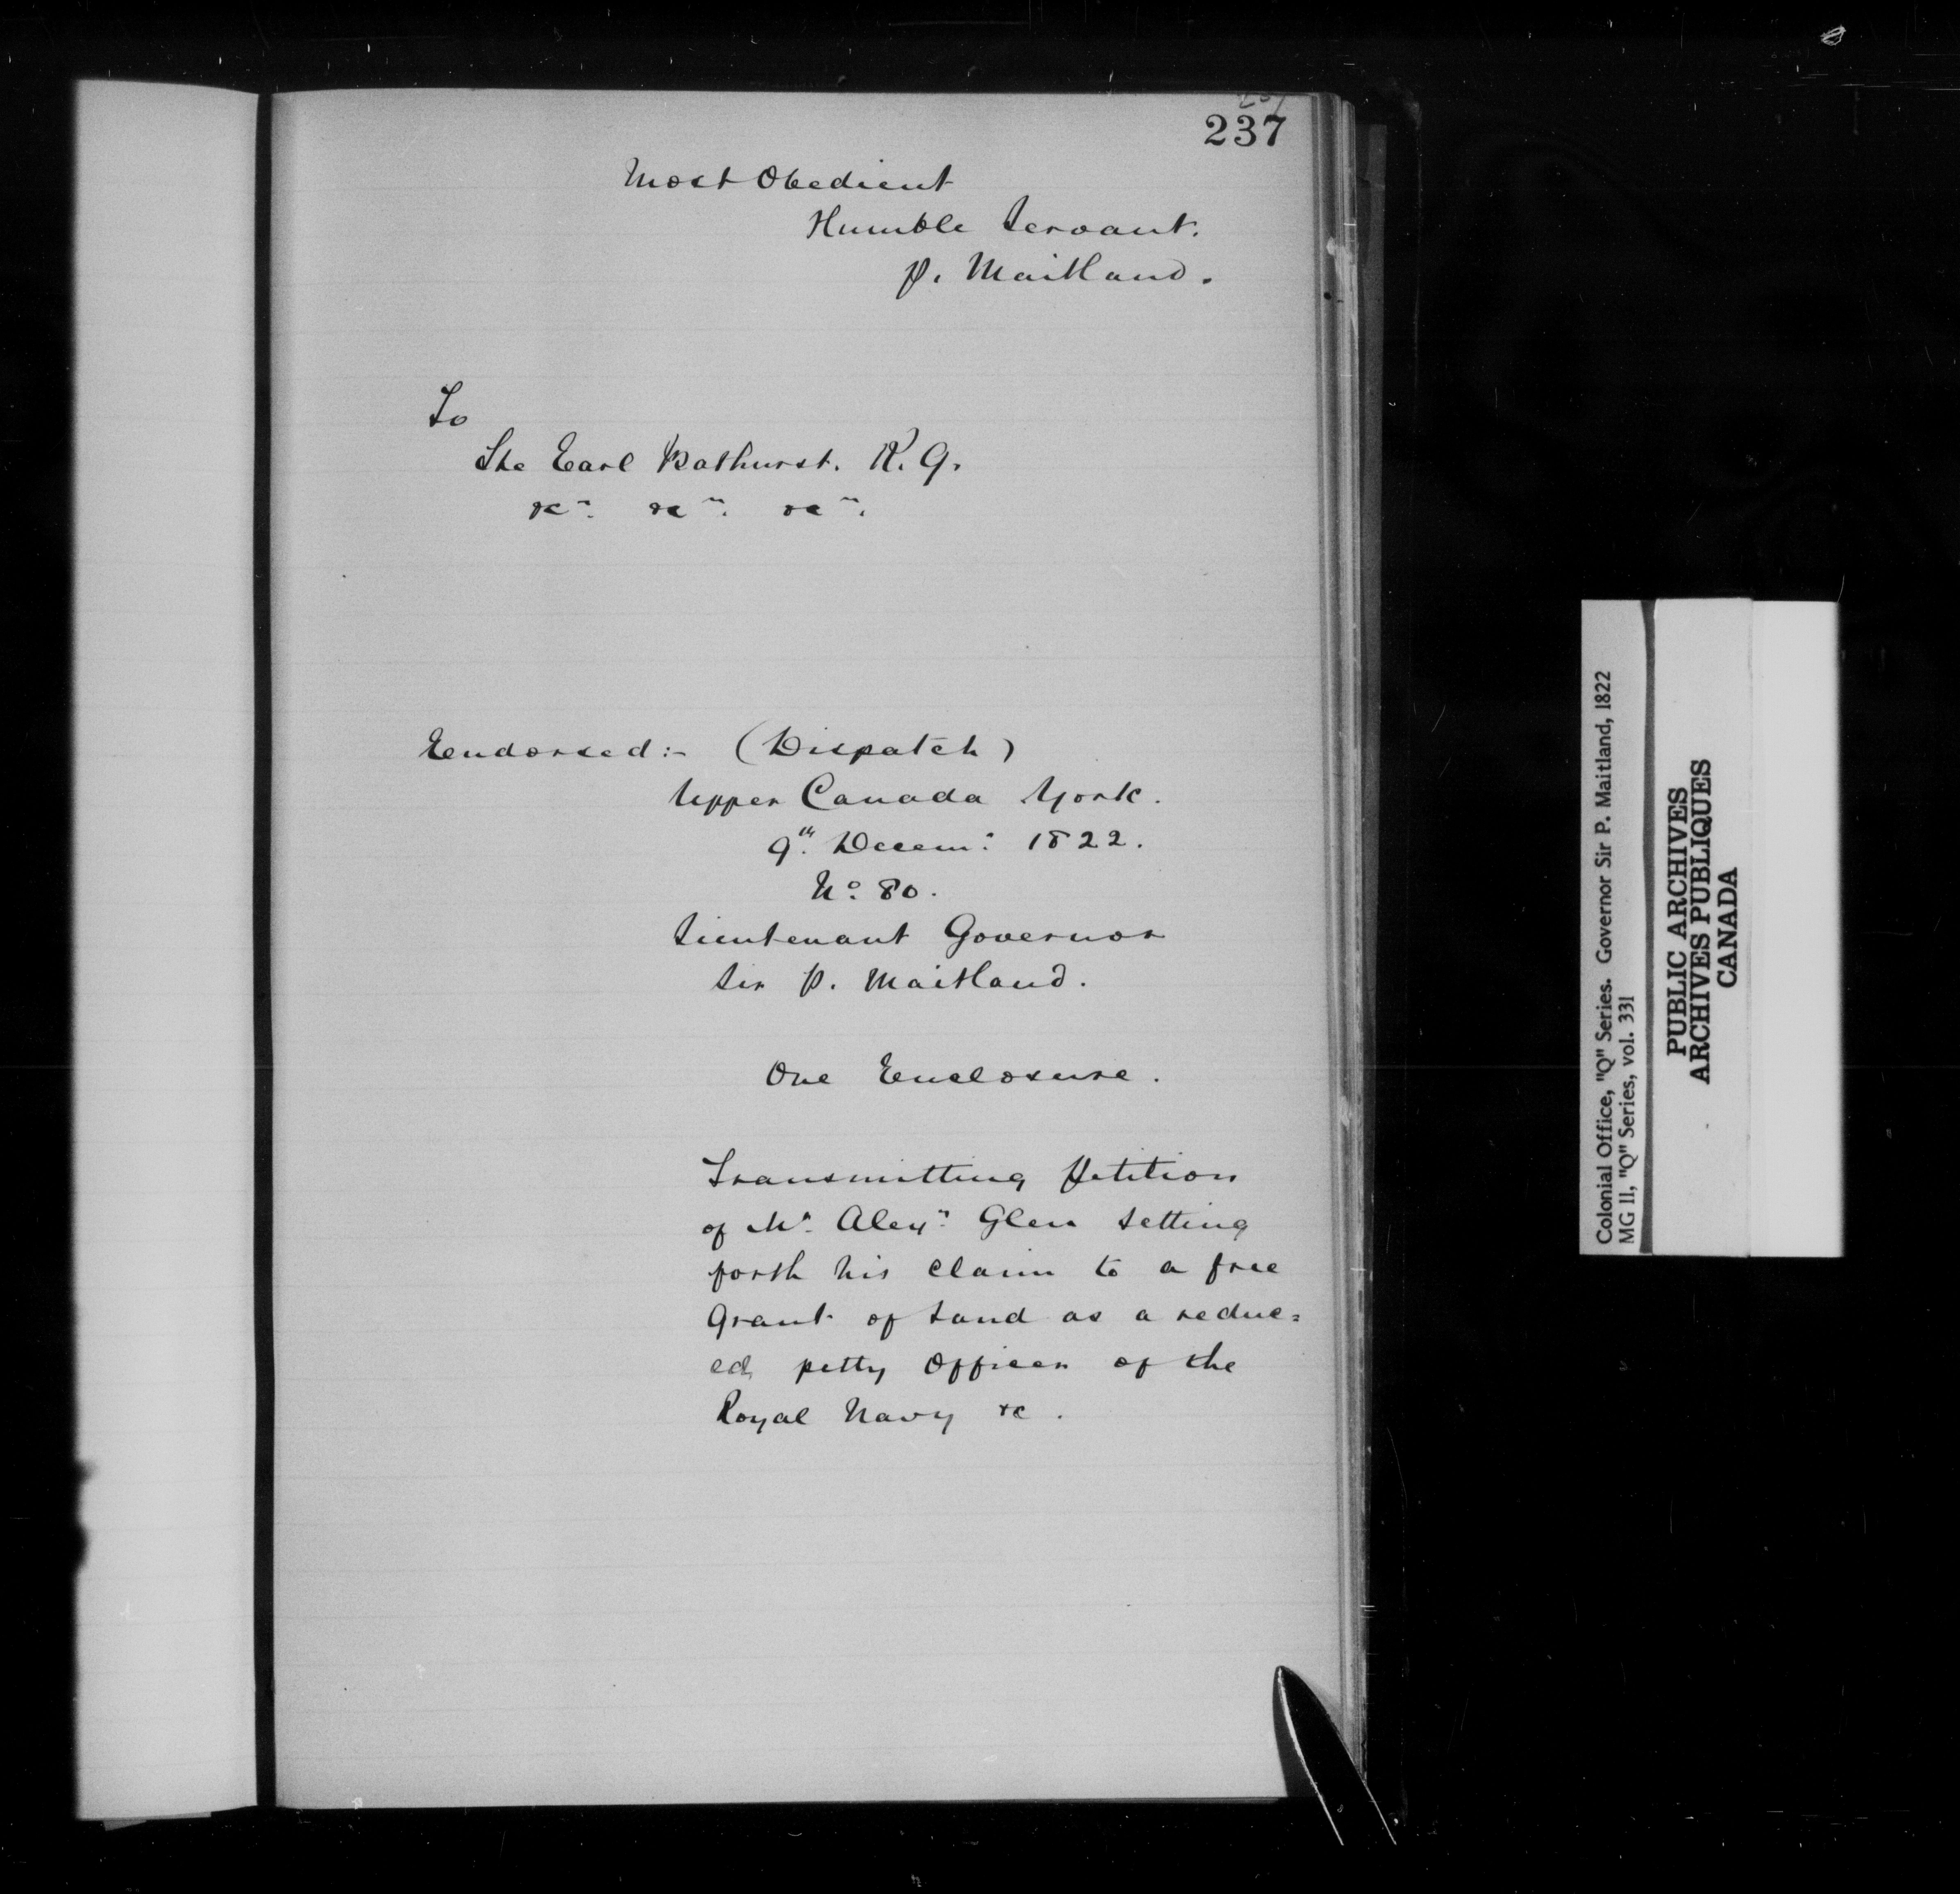 237
Most Obedient
Humble Servant.
P. Maitland.
To
The Earl Bathurst. K. G.
&c. &c. &c.
Endorsed:- (Dispatch)
Upper Canada York.
9th Decemr 1822.
No 80.
Lieutenant Governor
Sir P. Maitland.
One Enclosure.
Transmitting Petition
of Mr Alexr Glen setting
forth his claim to a free
Grant of Land as a reduc=
ed petty Officer of the
Royal Navy &c.
Colonial Office, "Q" Series. Governor Sir P. Maitland, 1822
MG 11, "Q" Series, vol. 331
PUBLIC ARCHIVES
ARCHIVES PUBLIQUES
CANADA